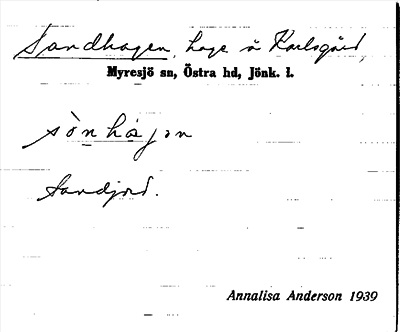 Sandhagen, hage å Karlsgård,
Myresjö sn, Östra hd, Jönk. l.
sònhàjən
Sandjord.
Annalisa Anderson 1939